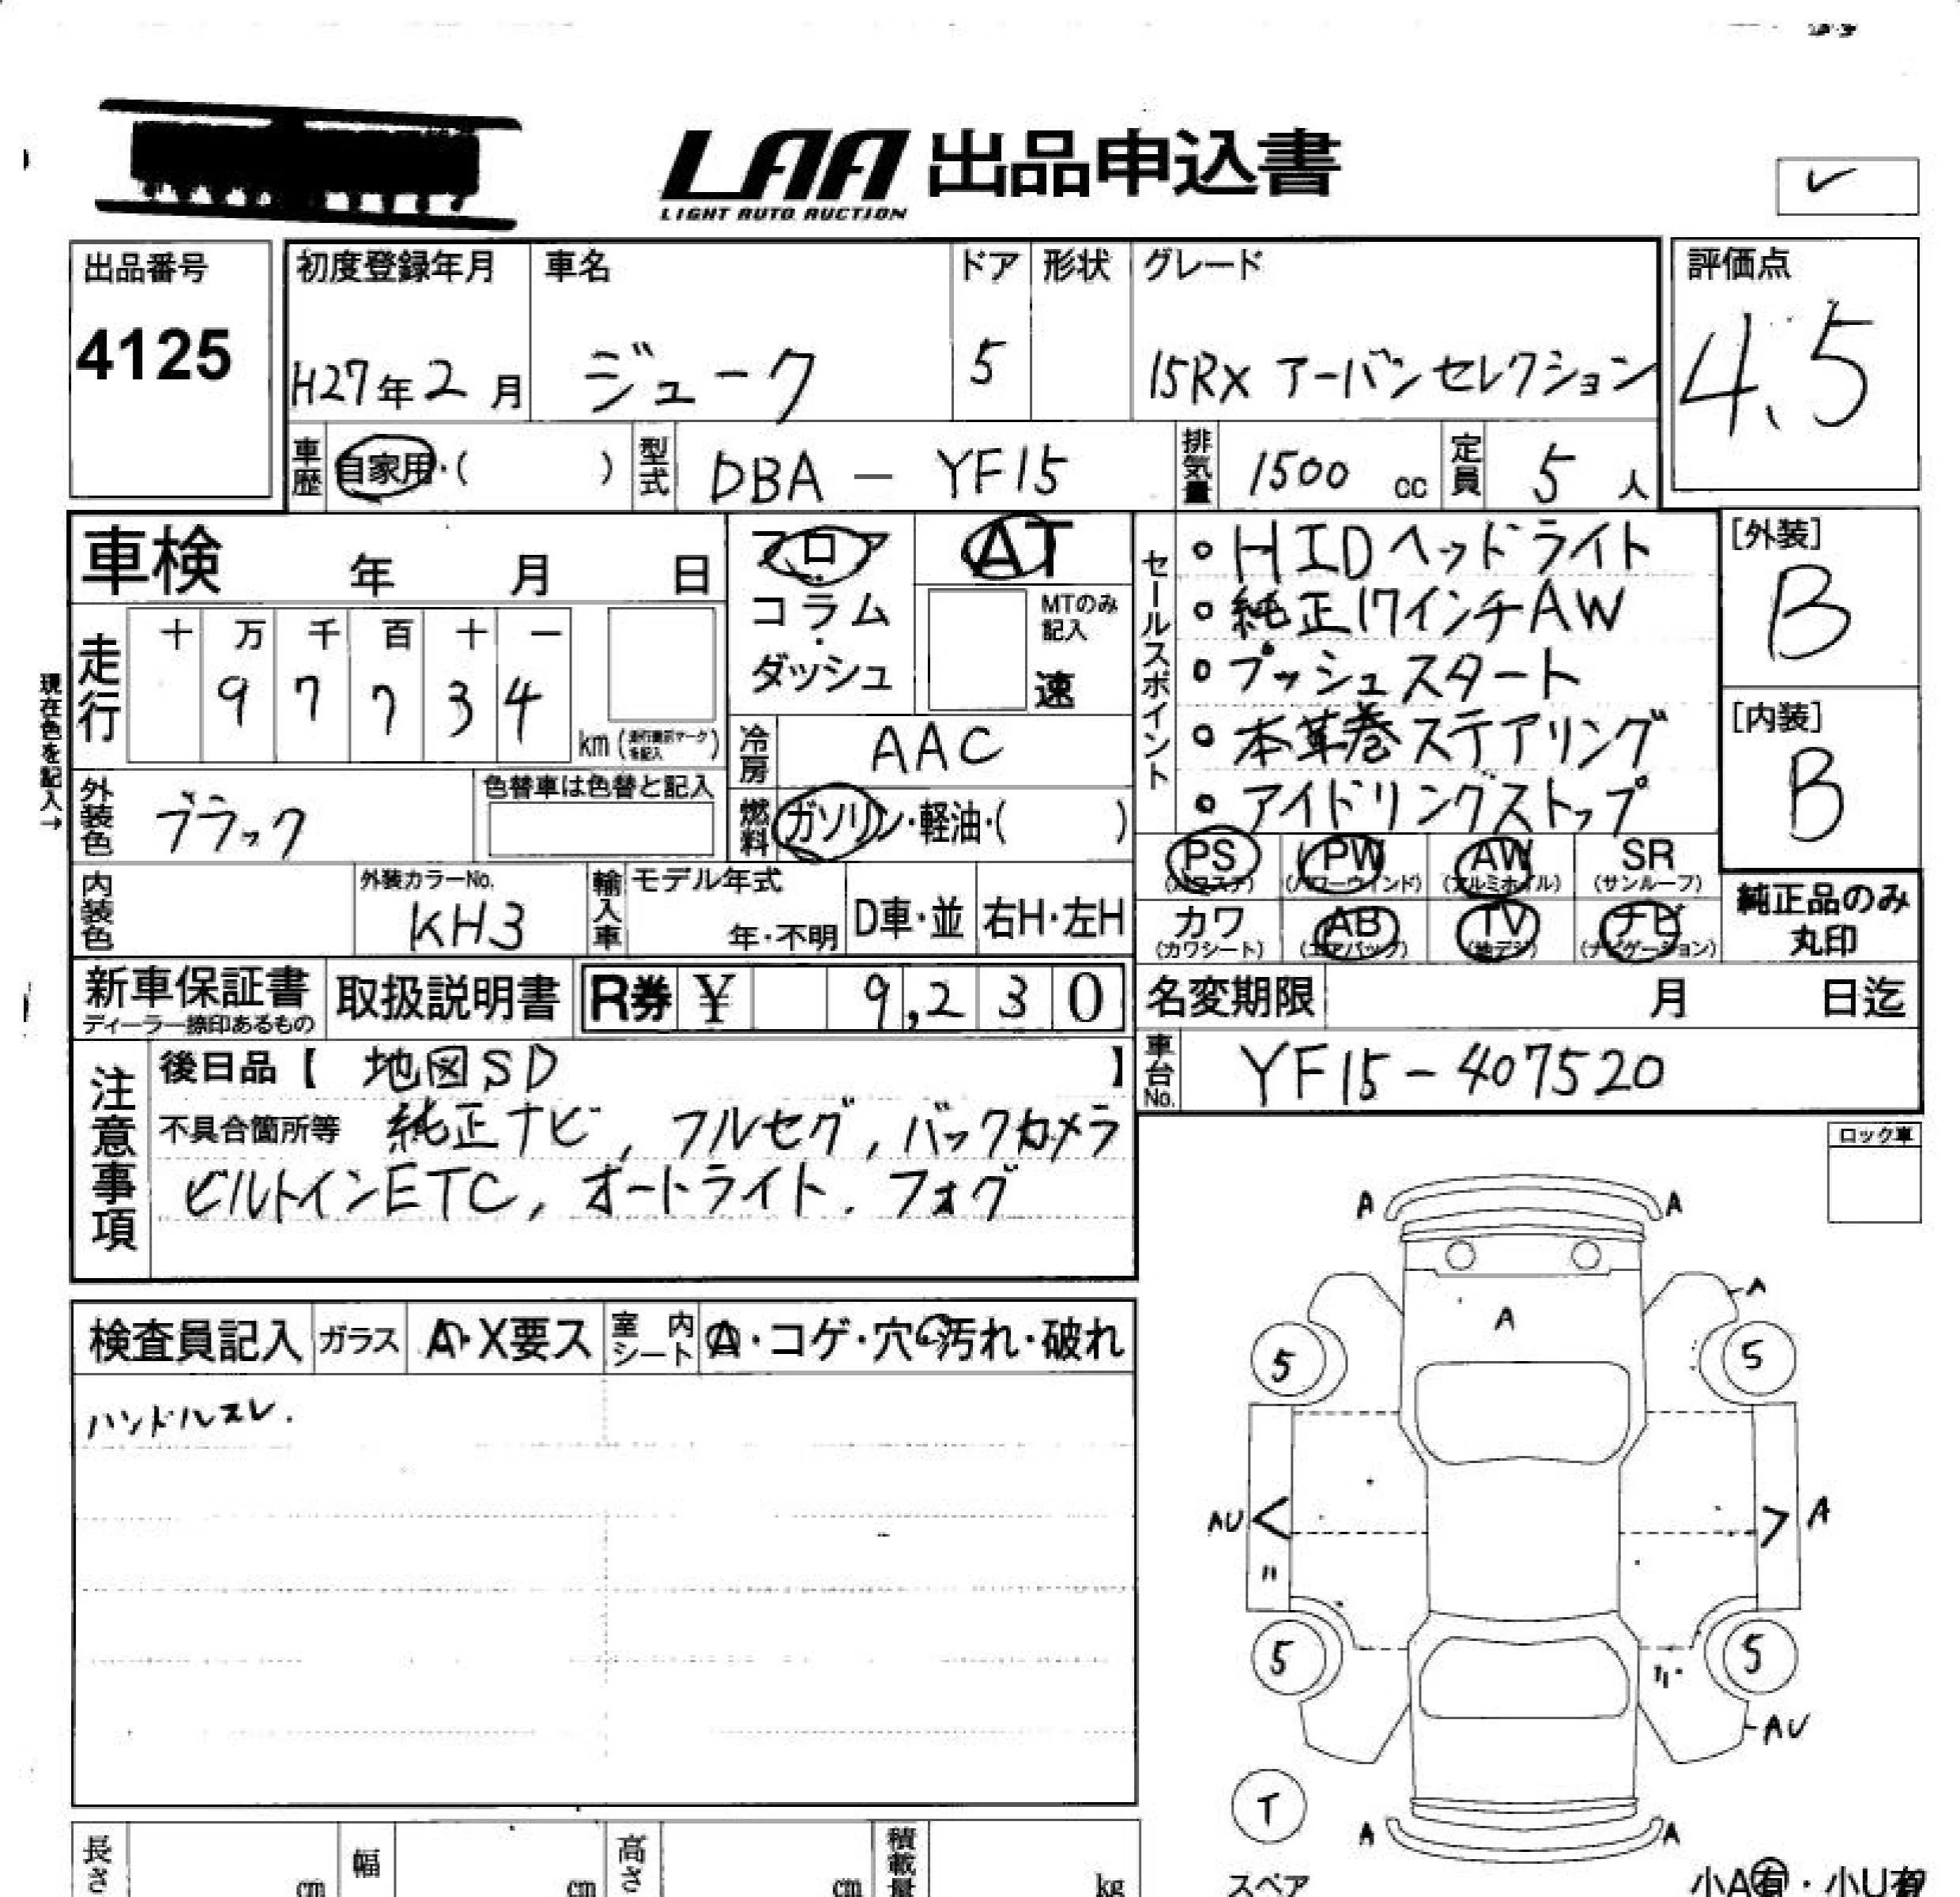 LAA 出品申込書
LIGHT AUTO AUCTION
✓
出品番号
4125
初度登録年月
H27年2月
車名
ジューク
ドア
5
形状
グレード
15RX アーバンセレクション
評価点
4.5
車歴 自家用・( )
型式 DBA - YF15
排気量 1500 cc
定員 5 人
車検 年 月 日
フロア
コラム
・
ダッシュ
AT
MTのみ
記入
速
セールスポイント
・HIDヘッドライト
・純正17インチAW
・プッシュスタート
・本革巻ステアリング
・アイドリングストップ
[外装]
B
[内装]
B
現在色を記入→
走行
十 万 千 百 十 一
9 7 7 3 4
km
冷房 AAC
外装色 ブラック
色替車は色替と記入
燃料 ガソリン・軽油・( )
PS (パワステ)
PW (パワーウィンド)
AW (アルミホイル)
SR (サンルーフ)
カワ (カワシート)
AB (エアバッグ)
TV (地デジ)
ナビ (ナビゲーション)
純正品のみ
丸印
内装色
外装カラーNo.
KH3
輸入車
モデル年式
年・不明
D車・並
右H・左H
新車保証書
ディーラー捺印あるもの
取扱説明書
R券 ¥ 9,230
名変期限 月 日迄
車台No. YF15-407520
注意事項
後日品【 地図SD 】
不具合箇所等 純正ナビ, フルセグ, バックカメラ
ビルトインETC, オートライト, フォグ
ロック車
検査員記入
ガラス A・X要ス
室内シート A・コゲ・穴・汚れ・破れ
ハンドルスレ.
A A
A
A
5 5
AU A
〃
5 5
AU
T
スペア
A A
小A有・小U有
長さ cm
幅 cm
高さ cm
積載量 kg